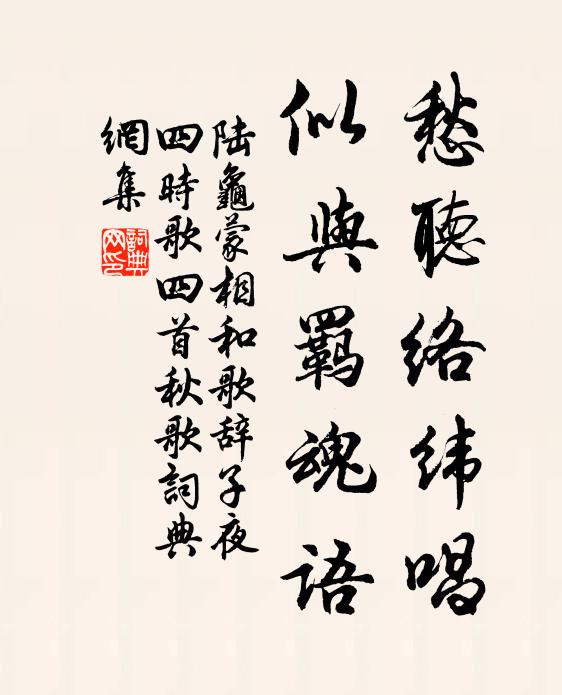 愁聽絡緯唱
似與羈魂语
陆龜蒙相和歌辞子夜
四時歌四首秋歌詞典
網集
詞典
网印